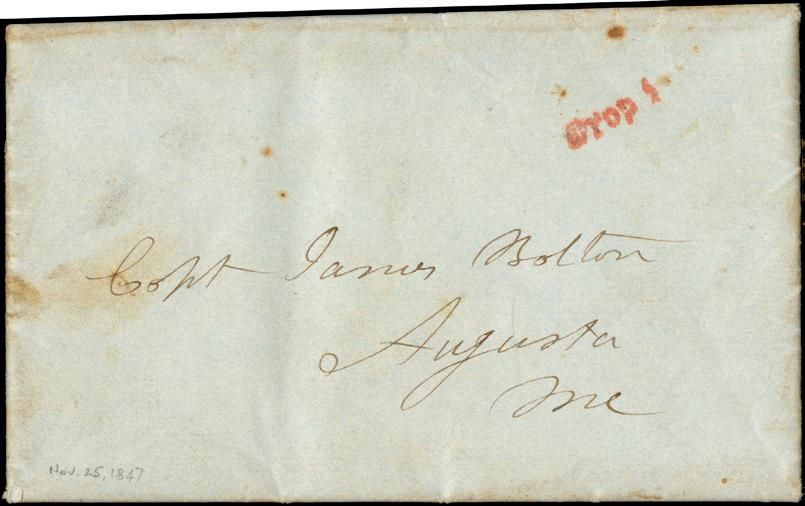 Drop 1
Capt James Bolton
Augusta
Me
Nov. 25, 1847